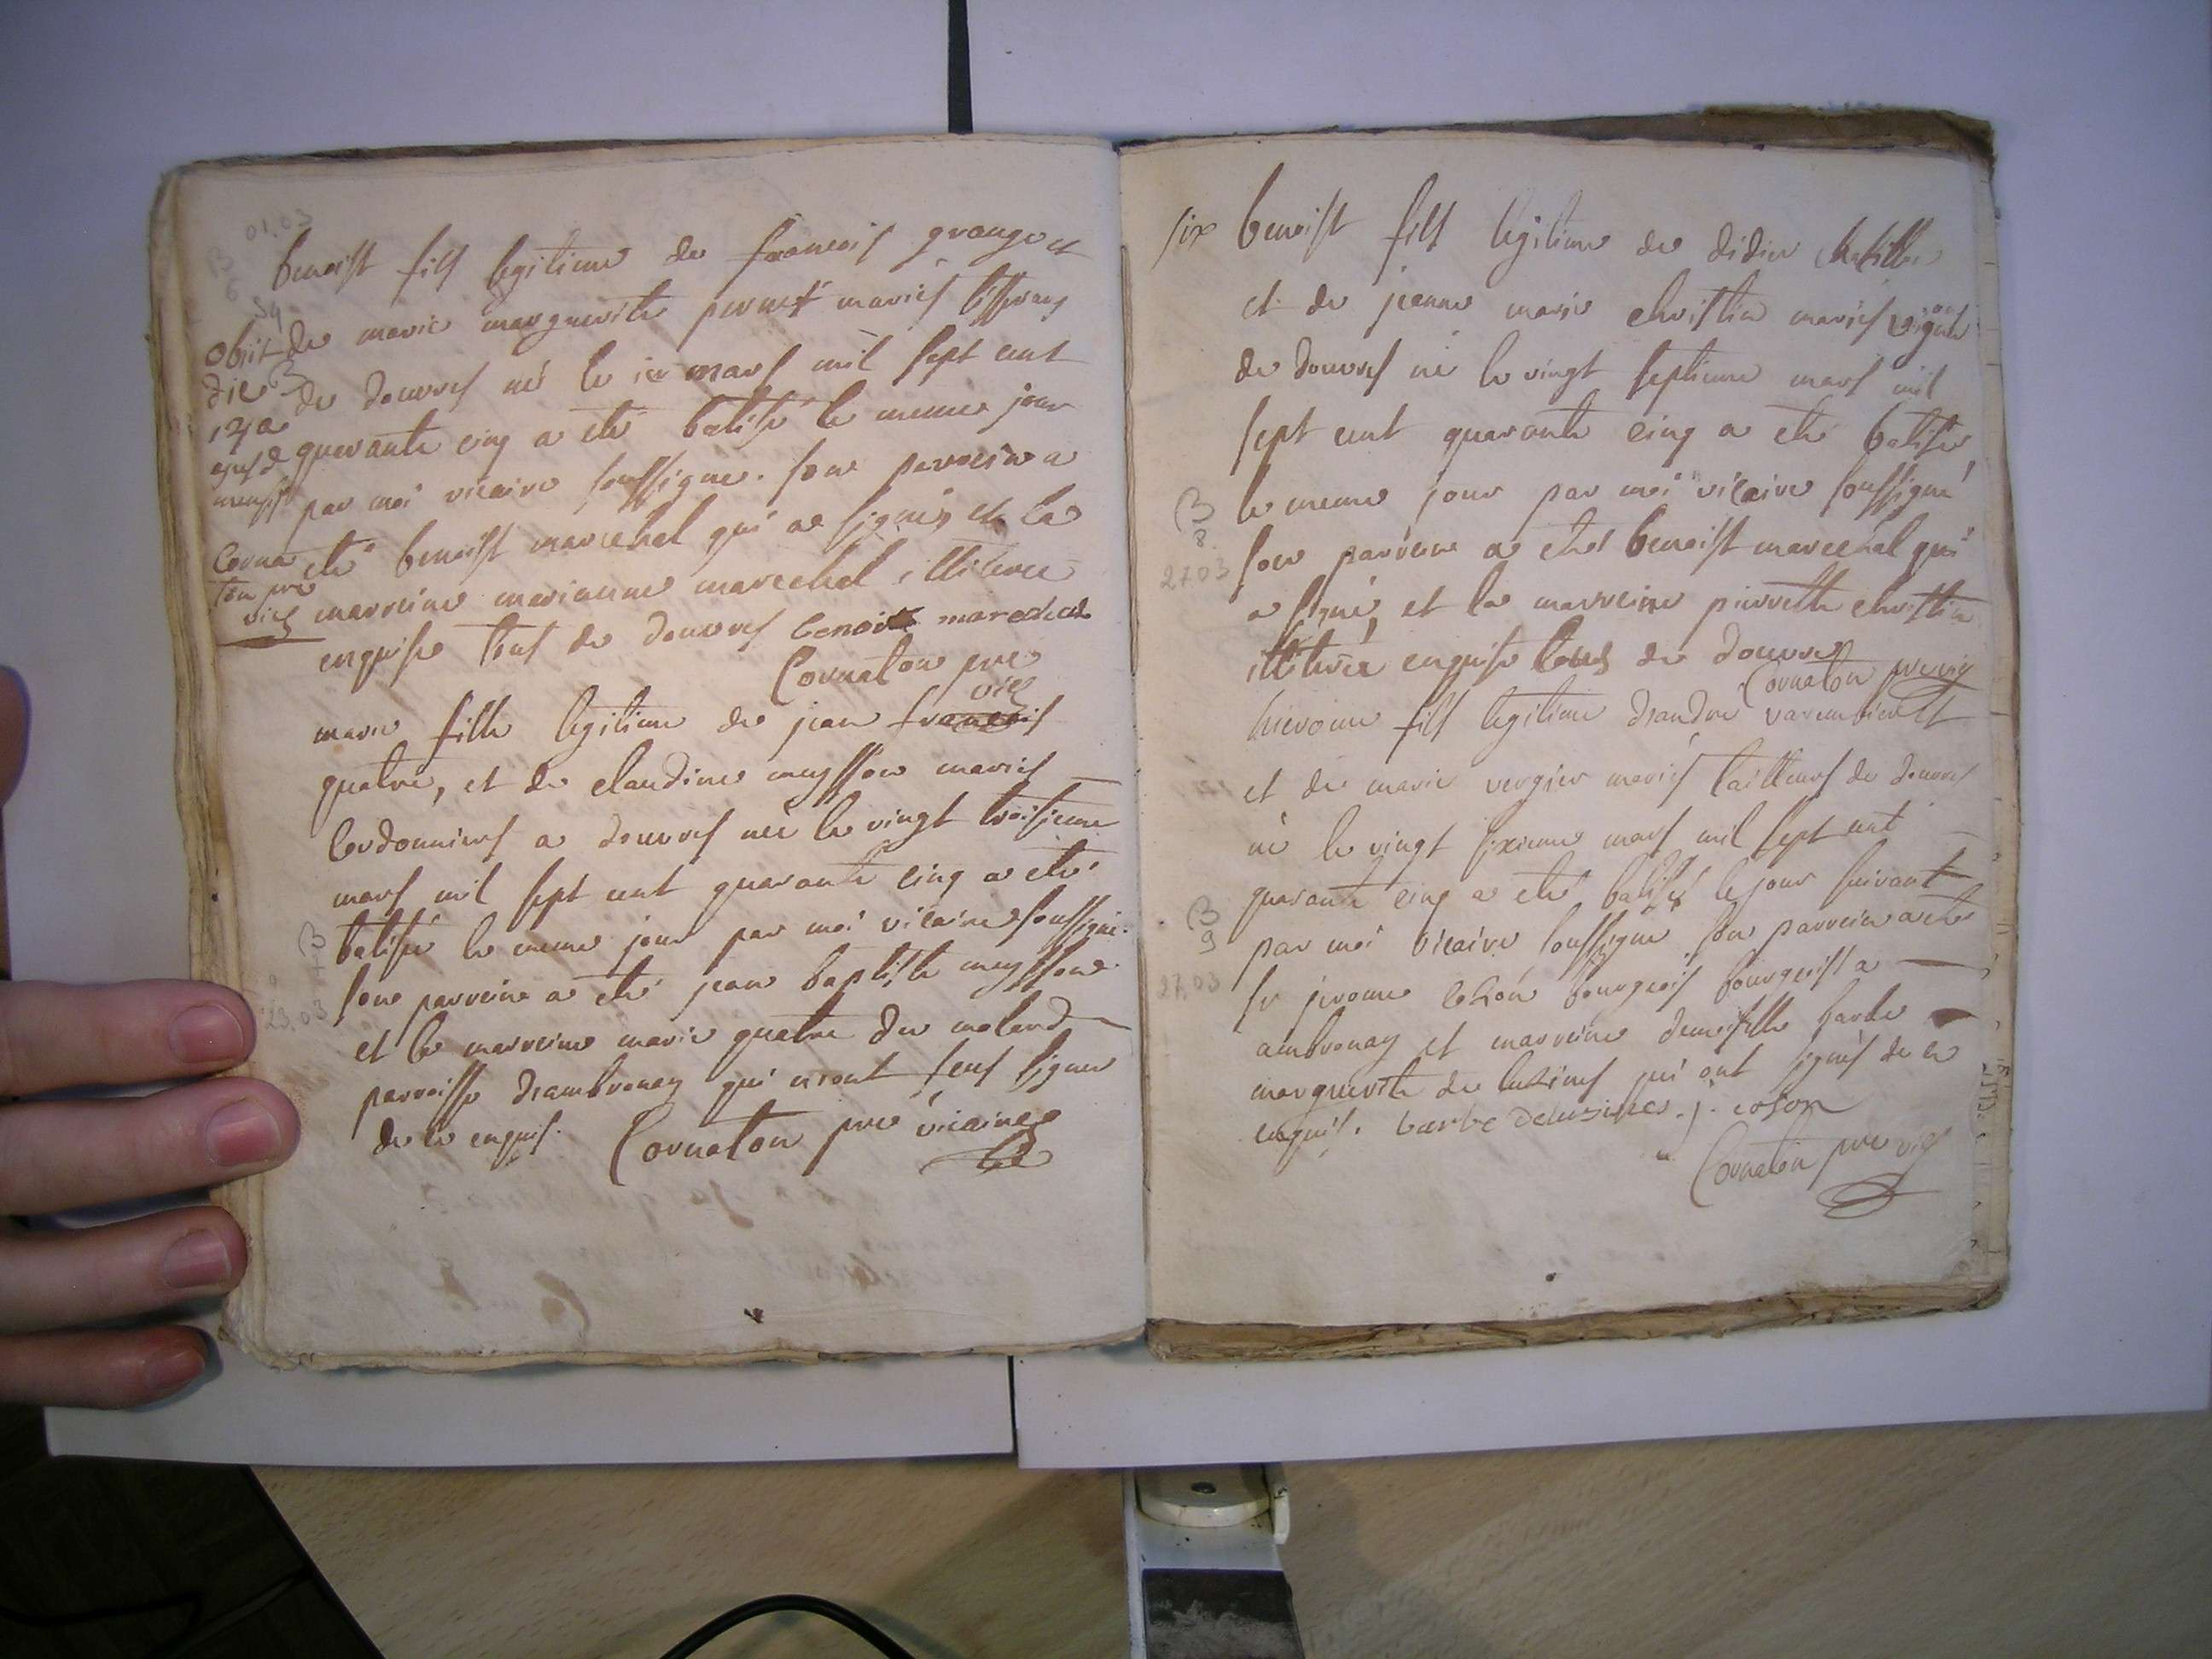 01.03
benoist fils legitime de francois grange et
de marie marguerite pernet mariés tisserans
de douvres né le ier mars mil sept cent
quarante cinq a eté batisé le meme jour
par moi vicaire soussigné. son parrein a
eté benoist marechal qui a signé, et la
marreine marianne marechal illiterée
enquise tous de douvres benoit marechal
Cornaton pre
vic
obiit
die
12a
ejusd
mensis
Corna
ton pre
vic
marie fille legitime de jean francois
quatre, et de claudine meysson mariés
Cordonniers a douvres née le vingt troisieme
mars mil sept cent quarante cinq a eté
batisée le meme jour par moi vicaire soussigné.
son parrein a eté jean baptiste meysson
et la marreine marie quatre du molard
parroisse d'ambronay qui n'ont seus signer
de ce enquis. Cornaton pre vicaire
B
23.03
six
benoist fils legitime de didier
et de jeanne marie christin mariés vignerons
de douvres né le vingt septieme mars mil
sept cent quarante cinq a eté batisé
le meme jour par moi vicaire soussigné
son parrein a eté benoist marechal qui
a signé, et la marreine pierrette christin
illiterée enquise tous de douvres
Cornaton pre vic
B
8
27.03
hierome fils legitime d'andré varembier et
et de marie vergier mariés tailleurs de douvres
né le vingt sixieme mars mil sept cent
quarante cinq a eté batisé le jour suivant
par moi vicaire soussigné son parrein a eté
sr jerome bourgeois bourgeois a
ambronay et marreine demoiselle barbe
marguerite de lusines qui ont signés de ce
enquis. barbe delusines. j.
Cornaton pre vic
B
9
27.03